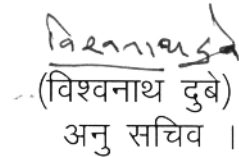 विश्वनाथ दुबे
(विश्वनाथ दुबे)
अनु सचिव ।